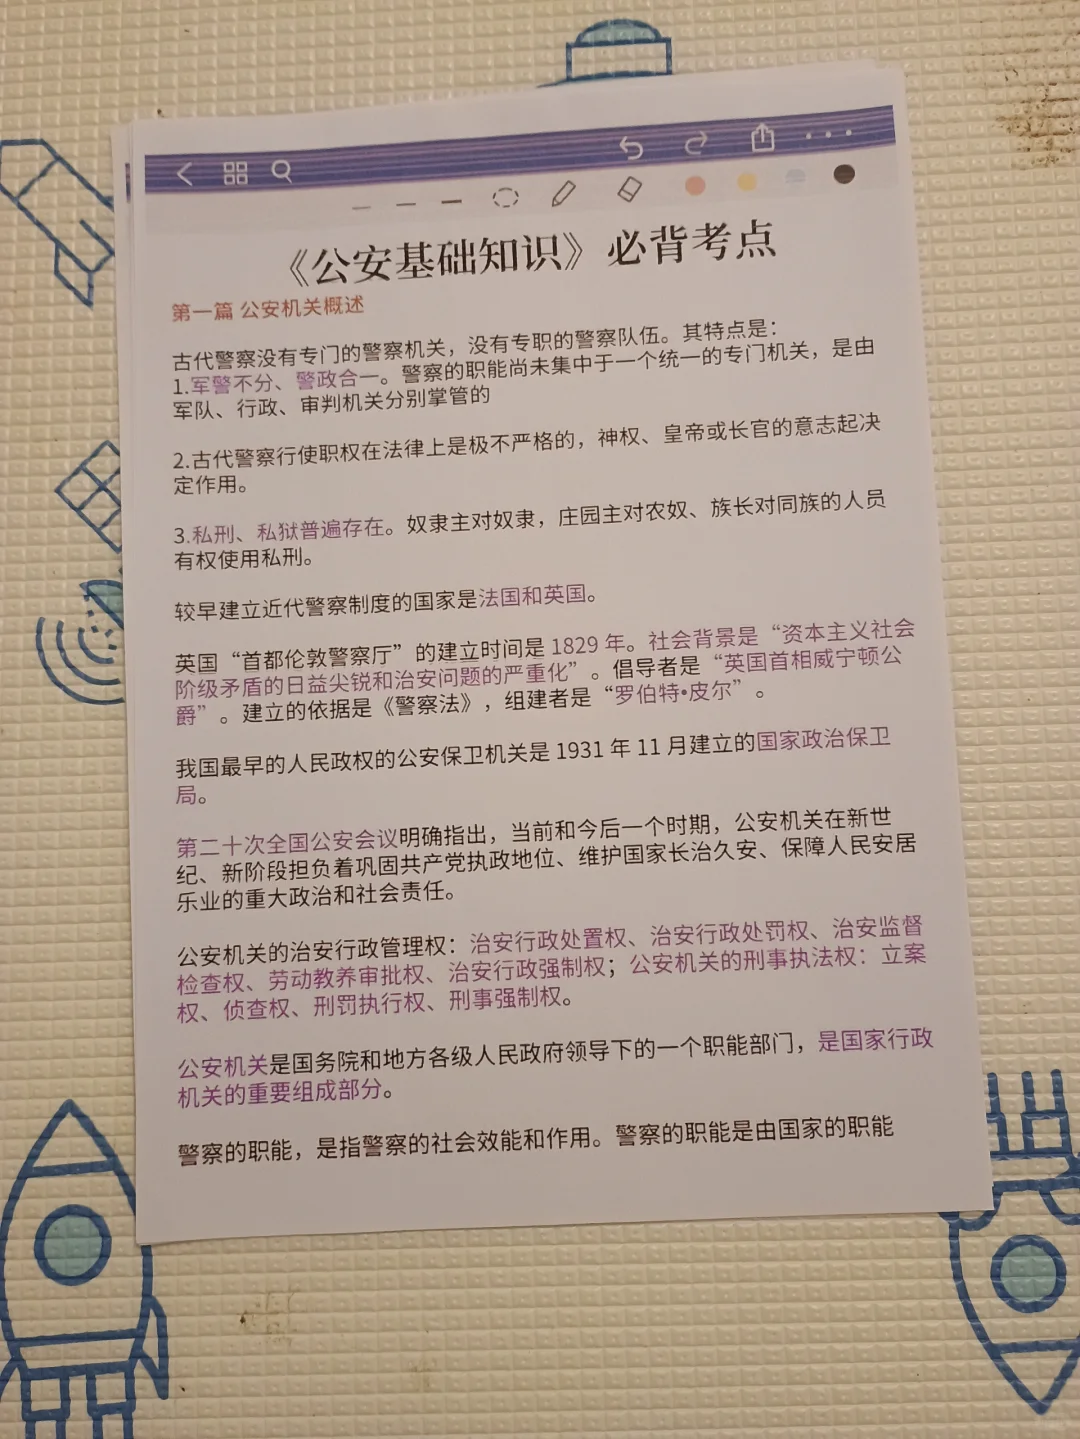 《公安基础知识》必背考点
第一篇 公安机关概述
古代警察没有专门的警察机关，没有专职的警察队伍。其特点是：
1.军警不分、警政合一。警察的职能尚未集中于一个统一的专门机关，是由
军队、行政、审判机关分别掌管的
2.古代警察行使职权在法律上是极不严格的，神权、皇帝或长官的意志起决
定作用。
3.私刑、私狱普遍存在。奴隶主对奴隶，庄园主对农奴、族长对同族的人员
有权使用私刑。
较早建立近代警察制度的国家是法国和英国。
英国“首都伦敦警察厅”的建立时间是 1829 年。社会背景是“资本主义社会
阶级矛盾的日益尖锐和治安问题的严重化”。倡导者是“英国首相威宁顿公
爵”。建立的依据是《警察法》，组建者是“罗伯特•皮尔”。
我国最早的人民政权的公安保卫机关是 1931 年 11 月建立的国家政治保卫
局。
第二十次全国公安会议明确指出，当前和今后一个时期，公安机关在新世
纪、新阶段担负着巩固共产党执政地位、维护国家长治久安、保障人民安居
乐业的重大政治和社会责任。
公安机关的治安行政管理权：治安行政处置权、治安行政处罚权、治安监督
检查权、劳动教养审批权、治安行政强制权；公安机关的刑事执法权：立案
权、侦查权、刑罚执行权、刑事强制权。
公安机关是国务院和地方各级人民政府领导下的一个职能部门，是国家行政
机关的重要组成部分。
警察的职能，是指警察的社会效能和作用。警察的职能是由国家的职能